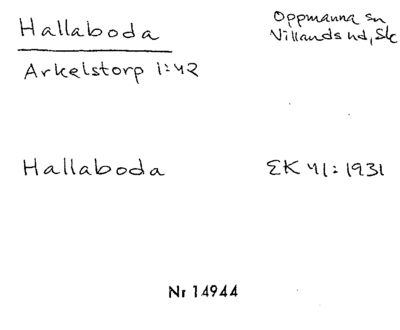 Hallaboda
Oppmanna sn
Villands hd, Sk
Arkelstorp 1:42
Hallaboda
EK 41:1931
Nr 14944